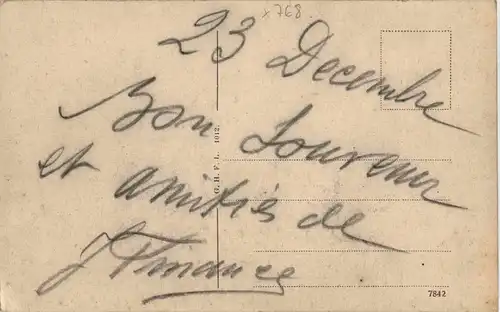 x768
23 Decembre
Bon Souvenir
et amitiés de
G. H. F. L. 1912.
7842